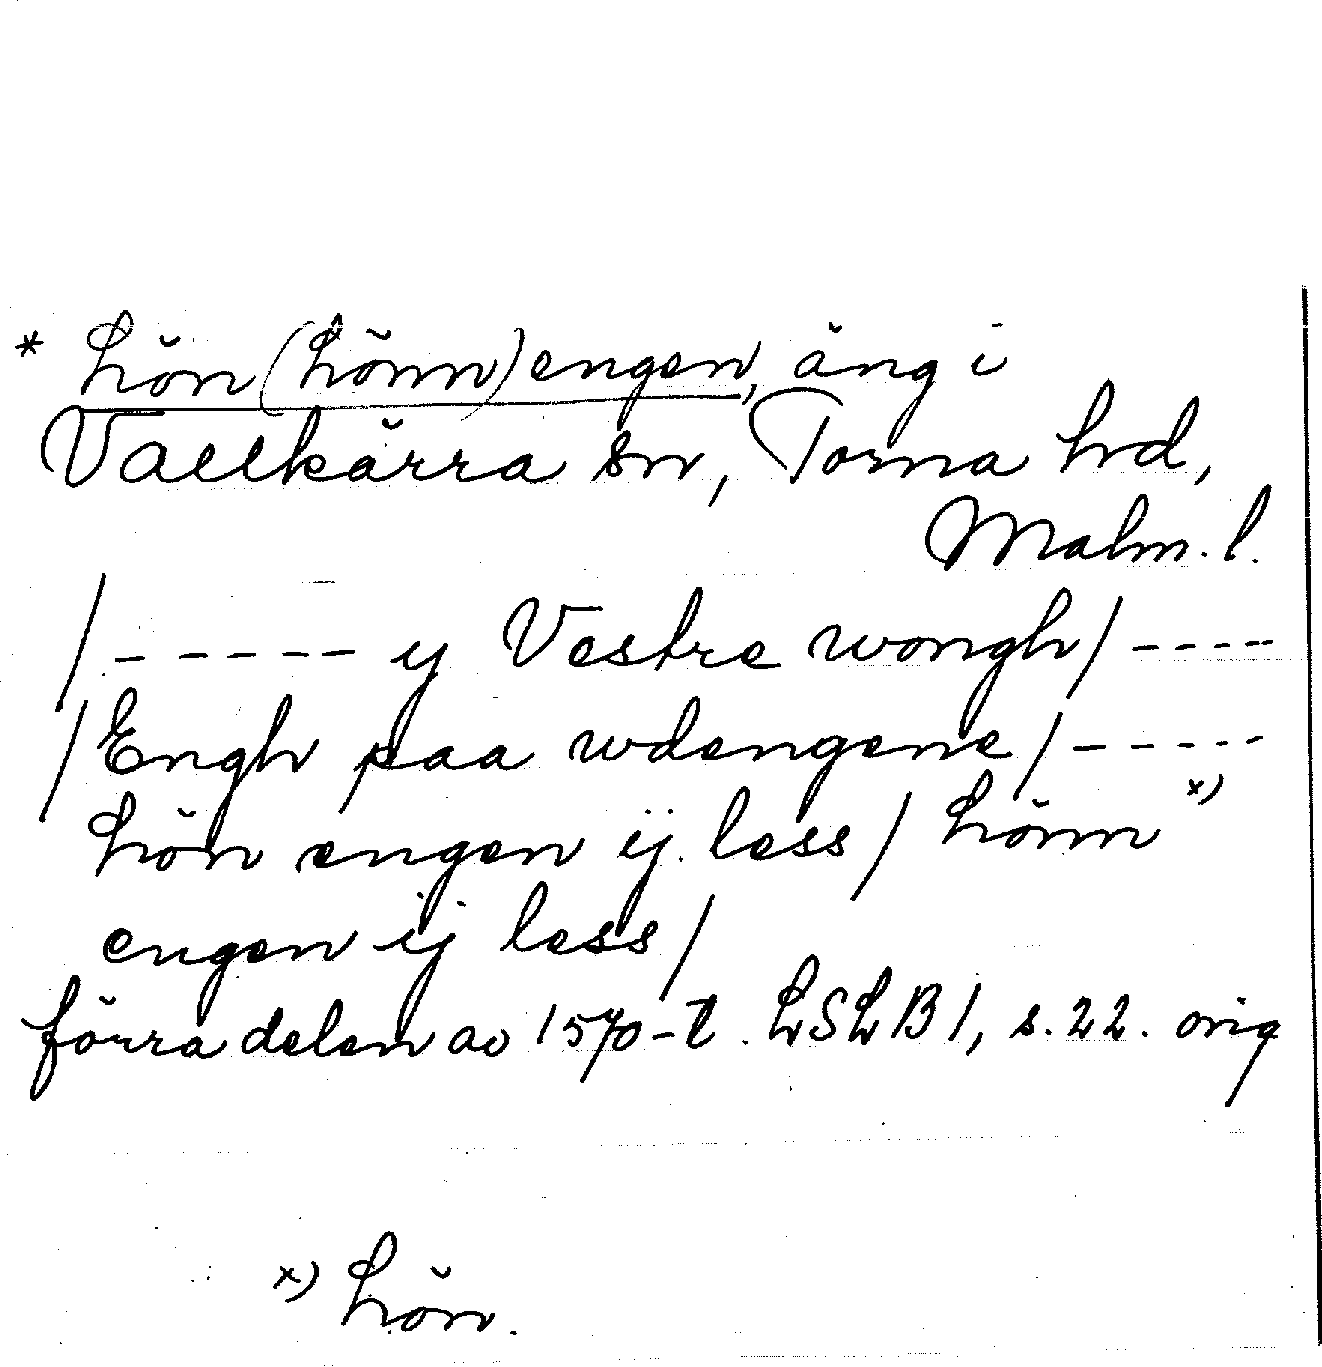 * hön(hönn)engen, äng i
Vallkärra sn, Torna hd,
Malm. l.
/----- y Vestre wongh/----
/Engh paa wdengene/-----
hön engen ij. less/ hönn x)
engen ij less/
förra delen av 1570-t. LSLB1, s. 22. orig
x) hön.